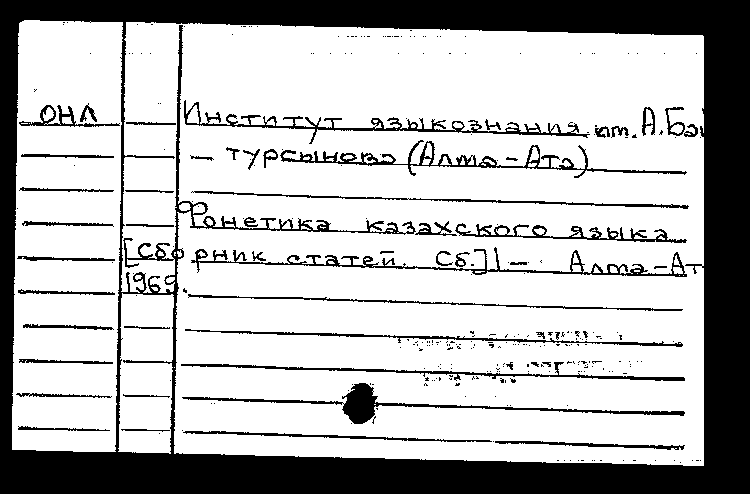 ОНЛ Институт языкознания им. А. Бай
— турсынова (Алма-Ата)
Фонетика казахского языка
[Сборник статей. Сб.] 1 — Алма-Ат
1969.